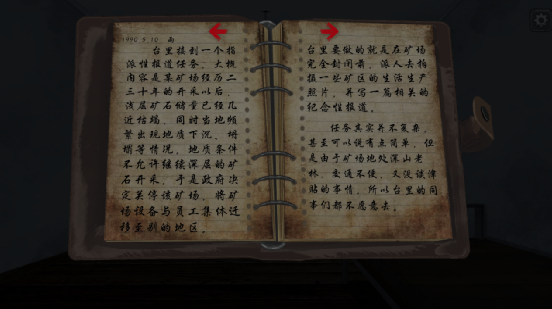 1996.5.10 雨
台里接到一个指
派性报道任务。大概
内容是某矿场经历二
三十年的开采以后，
浅层矿石储量已经几
近枯竭。同时当地频
繁出现地质下沉、坍
塌等情况，地质条件
不允许继续深层的矿
石开采。于是政府决
定关停该矿场，将矿
场设备与员工集体迁
移至别的地区。
台里要做的就是在矿场
完全封闭前，派人去拍
摄一些矿区的生活生产
照片，并写一篇相关的
纪念性报道。
任务其实并不复杂，
甚至可以说有点简单，但
是由于矿场地处深山老
林，交通不便，又没谈津
贴的事情，所以台里的同
事们都不愿意去。